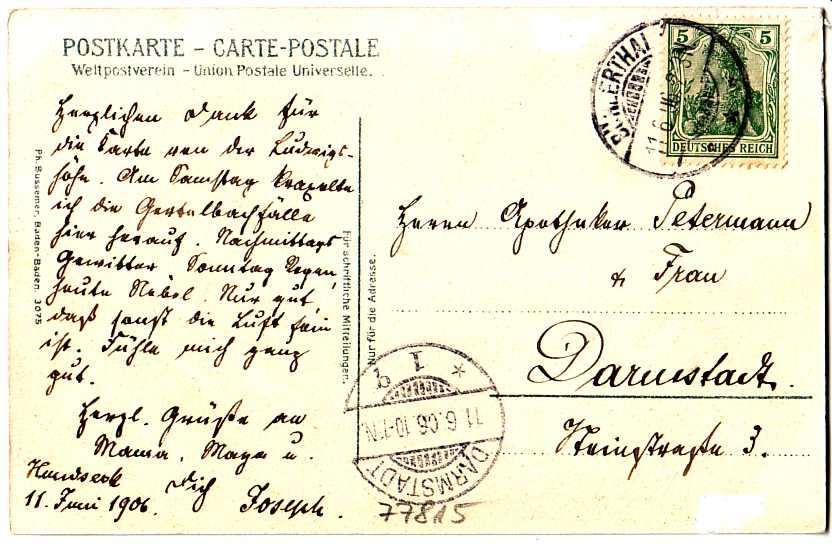 POSTKARTE – CARTE-POSTALE
Weltpostverein – Union Postale Universelle.
Herzlichen Dank für
die Karte von der Ludwigs-
höhe. Am Samstag kraxelte
ich die Gertelbachfälle
hier herauf. Nachmittags
Gewitter, Sonntag Regen,
heute Nebel. Nur gut,
daß sonst die Luft fein
ist. Fühle mich ganz
gut.
Herzl. Grüße an
Mama, Maya u.
Dich Joseph.
Hundseck
11. Juni 1906.
Ph. Bussemer, Baden-Baden. 3075
Für schriftliche Mitteilungen.
Nur für die Adresse.
BÜHLERTHAL
11.6.06
5 5
DEUTSCHES REICH
Herrn Apotheker Petermann
& Frau
Darmstadt.
Steinstraße 3.
DARMSTADT
11.6.06.10-11N.
1
77815